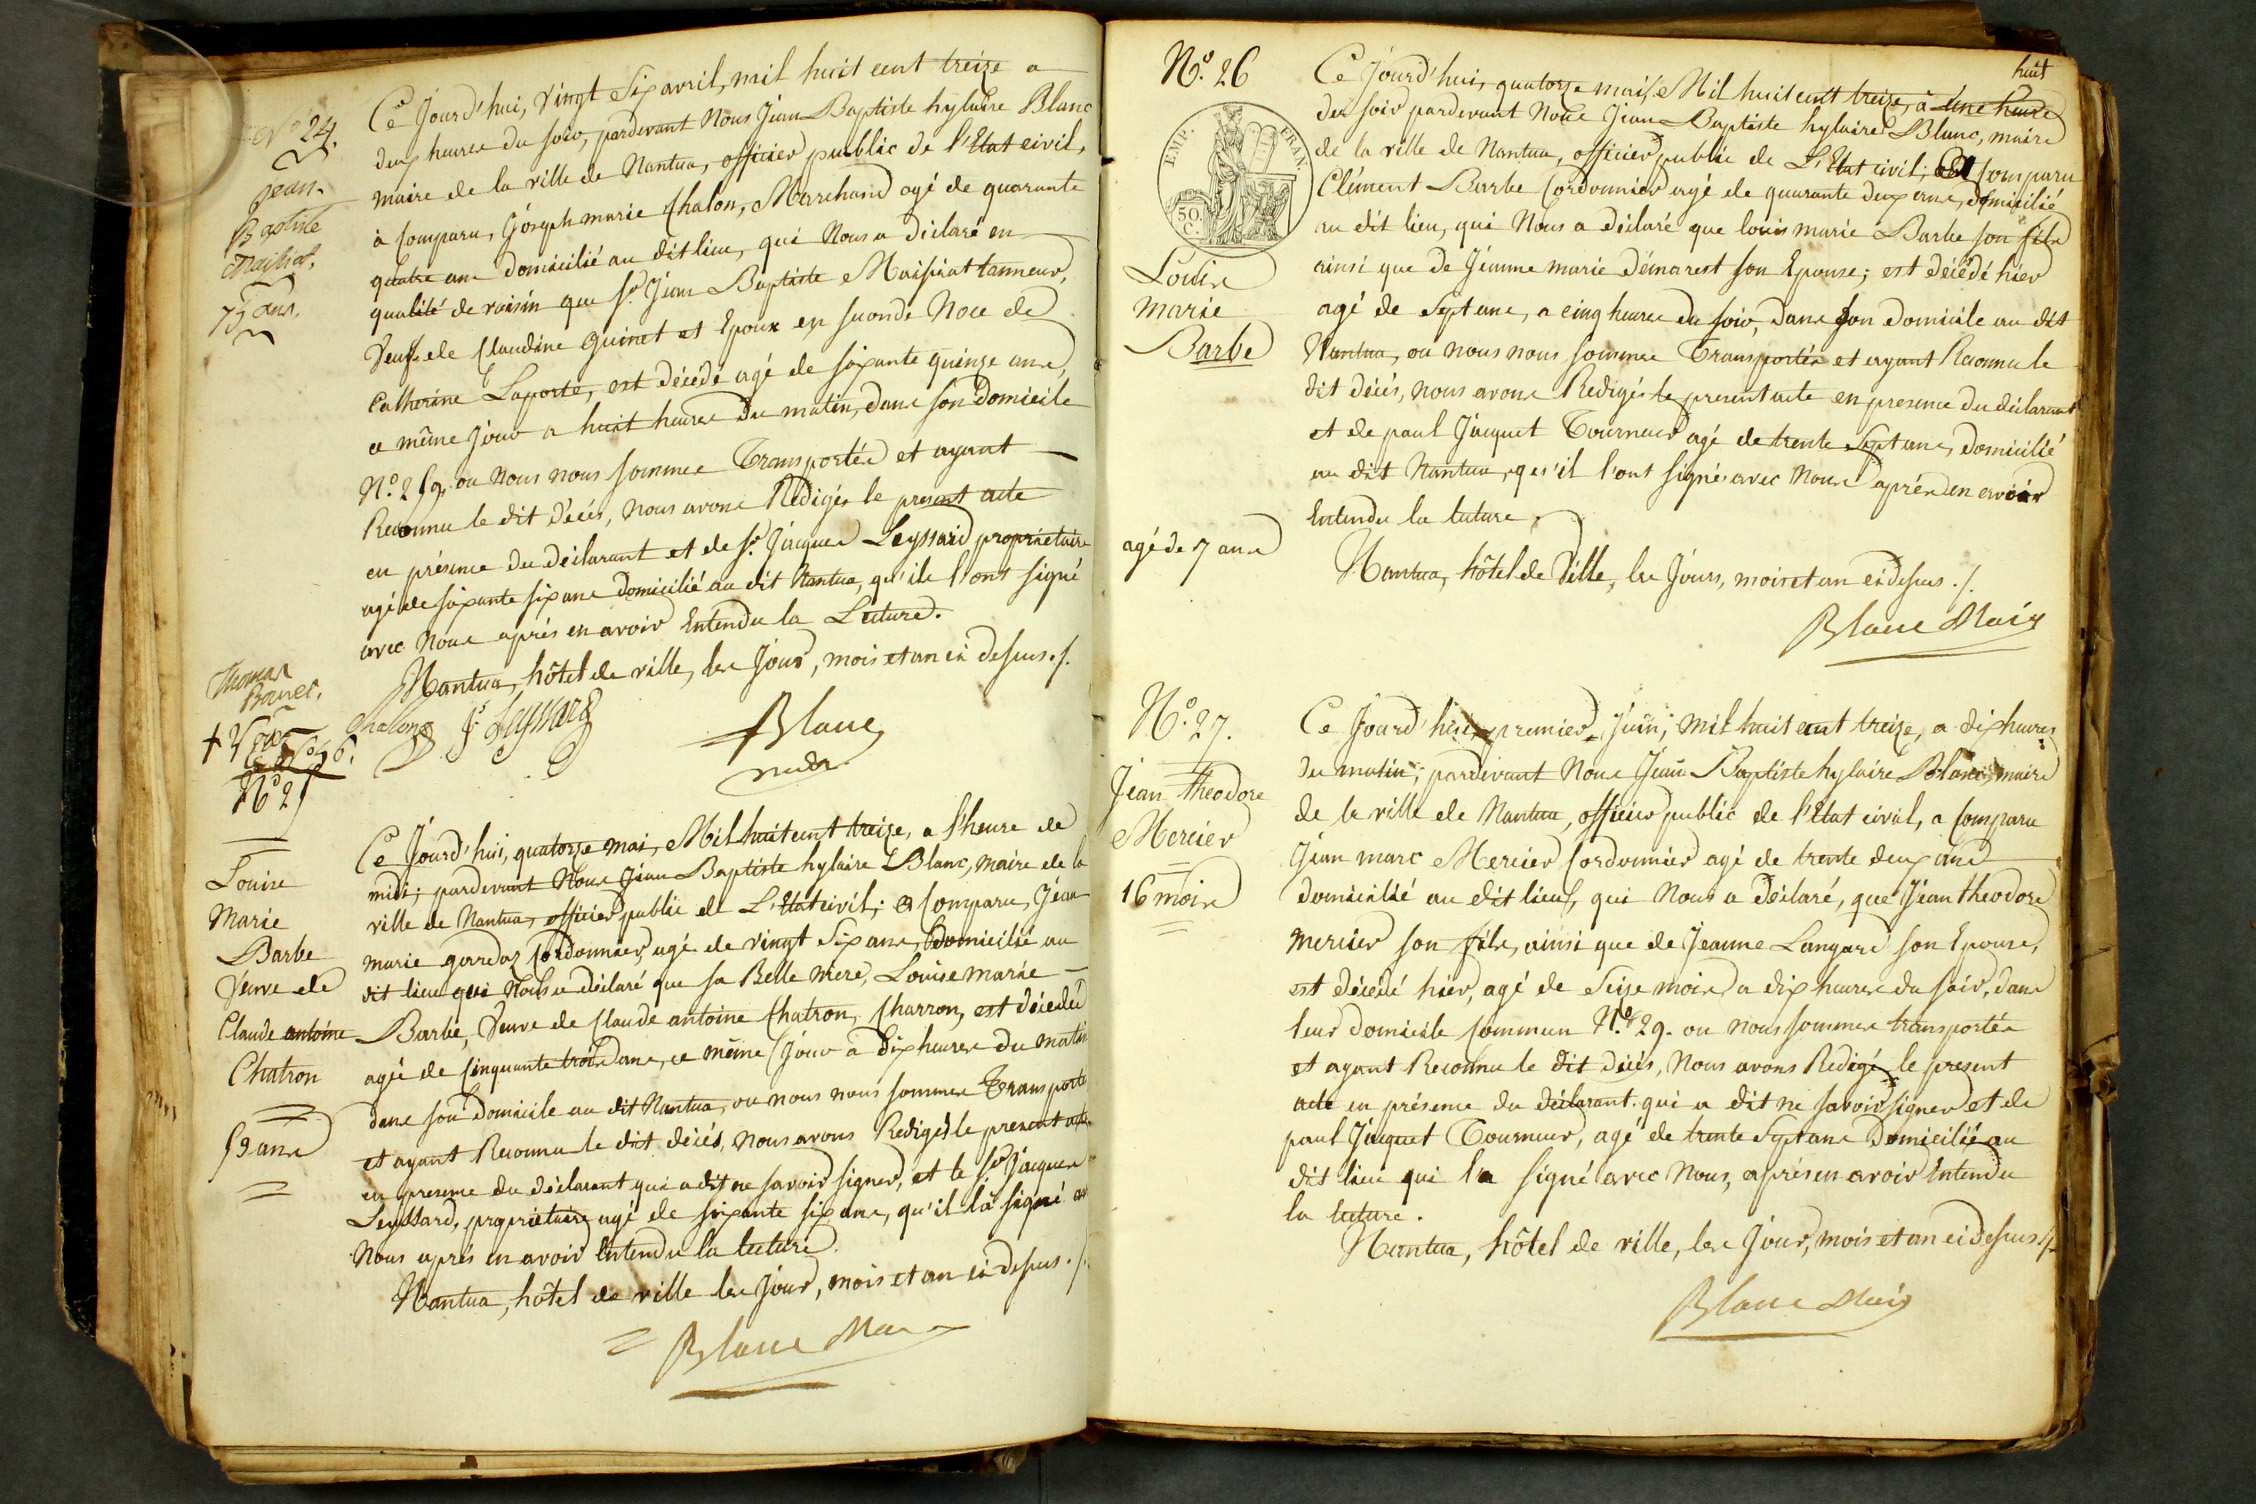 N.° 24.
Jean
Baptiste
Maissiat.
75 ans.
Ce Jourd'hui, vingt Six avril, mil huit cent treize a
deux heures du soir, pardevant Nous Jean Baptiste hylaire Blanc
maire de la ville de Nantua, officier public de l'Etat civil,
à Comparu, Joseph marie Chalon, Marchand agé de quarante
quatre ans domicilié au dit lieu, qui Nous a déclaré en
qualité de voisin que Sr. Jean Baptiste Maissiat tanneur,
Veuf de Claudine Guinet et Epoux en seconde Noce de
Catherine Laporte, est décédé agé de soixante quinze ans,
ce même jour a huit heures du matin, dans son domicile
N.° 259. ou Nous nous sommes Transportés et ayant
Reconnu le dit décés, Nous avons Redigés le present acte
en présence du déclarant et de Sr. Jacques Leyssard propriétaire
agé de soixante six ans domicilié au dit Nantua, qu'ils l'ont signé
avec Nous aprés en avoir Entendu la Lecture.
Nantua, hôtel de ville, les Jour, mois et an ci dessus ./.
Chalon Js. Leyssard
Blanc
maire
Thomas
N.° 25
Louise
Marie
Barbe
Veuve de
Claude antoine
Chatron
53 ans
Ce Jourd'hui, quatorze mai, Mil huit cent treize, a l'heure de
midi; pardevant Nous Jean Baptiste hylaire Blanc, maire de la
ville de Nantua, officier public de L'Etat civil; a Comparu, Jean
marie gorredoz Cordonnier, agé de vingt Six ans, domicilié au
dit lieu qui Nous a déclaré que sa Belle mere, Louise marie
Barbe, Veuve de Claude antoine Chatron, Charron, est décédée
agée de Cinquante trois ans, ce même Jour a dix heures du matin
dans son Domicile au dit Nantua, ou nous nous sommes Transporté
et ayant Reconnu le dit décés, nous avons Redigés le present acte
en presence du déclarant qui a dit ne savoir signer, et le Sr. Jacques
Leyssard, propriétaire agé de soixante six ans, qu'il l'a signé
Nous aprés en avoir Entendu la lecture.
Nantua, hôtel de ville les Jour, mois et an ci dessus ./.
Blanc Maire
huit
N.° 26
EMP. FRAN.
50
C.
Louis
marie
Barbe
agé de 7 ans
Ce Jourd'hui, quatorze mai, Mil huit cent treize, à Une heure
du soir pardevant Nous Jean Baptiste hylaire Blanc, maire
de la ville de Nantua, officier public de L'Etat civil; a Comparu
Clément Barbe Cordonnier agé de quarante deux ans, domicilié
au dit lieu, qui Nous a déclaré que louis marie Barbe son fils
ainsi que de Jeanne marie démarest son Epouse; est décédé hier
agé de Sept ans, a cinq heures du soir, dans son domicile au dit
Nantua, ou nous nous sommes Transportés et ayant Reconnu le
dit décés, nous avons Redigés le present acte en presence du déclarant
et de paul Jacquet Tourneur agé de trente Sept ans, domicilié
au dit Nantua, qu'il l'ont signés avec Nous aprés en avoir
Entendu la lecture.
Nantua, hôtel de Ville, les Jours, mois et an ci dessus ./.
Blanc Maire
N.° 27.
Jean Theodore
Mercier
16 mois
Ce Jourd'hui premier Juin, mil huit cent treize, a dix heures
du matin; pardevant Nous Jean Baptiste hylaire Blanc, maire
de la ville de Nantua, officier public de l'Etat civil, a Comparu
Jean marc Mercier Cordonnier agé de trente deux ans
domicilié au dit lieu, qui Nous a déclaré, que Jean theodore
mercier son fils, ainsi que de Jeanne Langard son Epouse,
est décédé hier, agé de Seize mois a dix heures du soir, dans
leur domicile Commun N.° 29. ou nous sommes transportés
et ayant Reconnu le dit décés, Nous avons Redigé le present
acte en présence du déclarant qui a dit ne savoir signer et de
paul Jacquet Tourneur, agé de trente Sept ans domicilié au
dit lieu qui l'a signé avec Nous, aprés en avoir Entendu
la lecture.
Nantua, hôtel de ville, les Jour, mois et an ci dessus ./.
Blanc Maire